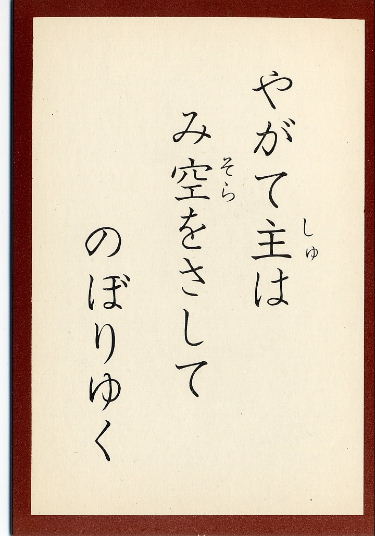 やがて主は
み空をさして
のぼりゆく
しゅ
そら